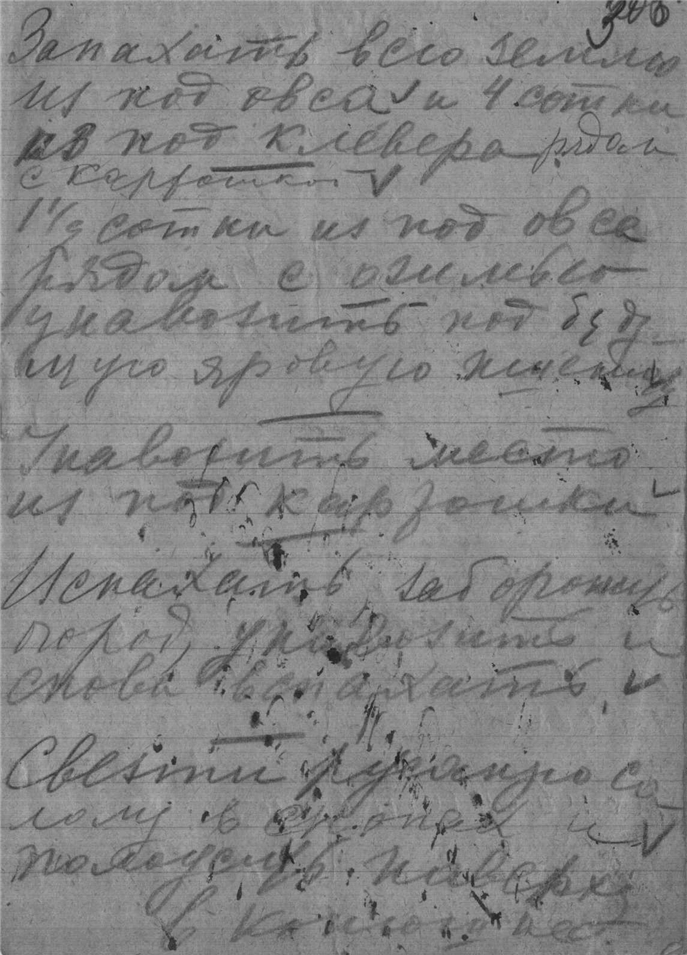 306
Запахать всю землю
из под овса и 4 сотки
из под клевера рядом
с картошкой
1 1/2 сотки из под овса
рядом с озимью
унавозить под буду-
щую яровую пшеницу
Унавозить место
из под картошки
Испахать
огород, унавозить и
снова вспахать.
Свезти со-
лому в снопах и
наверху
в